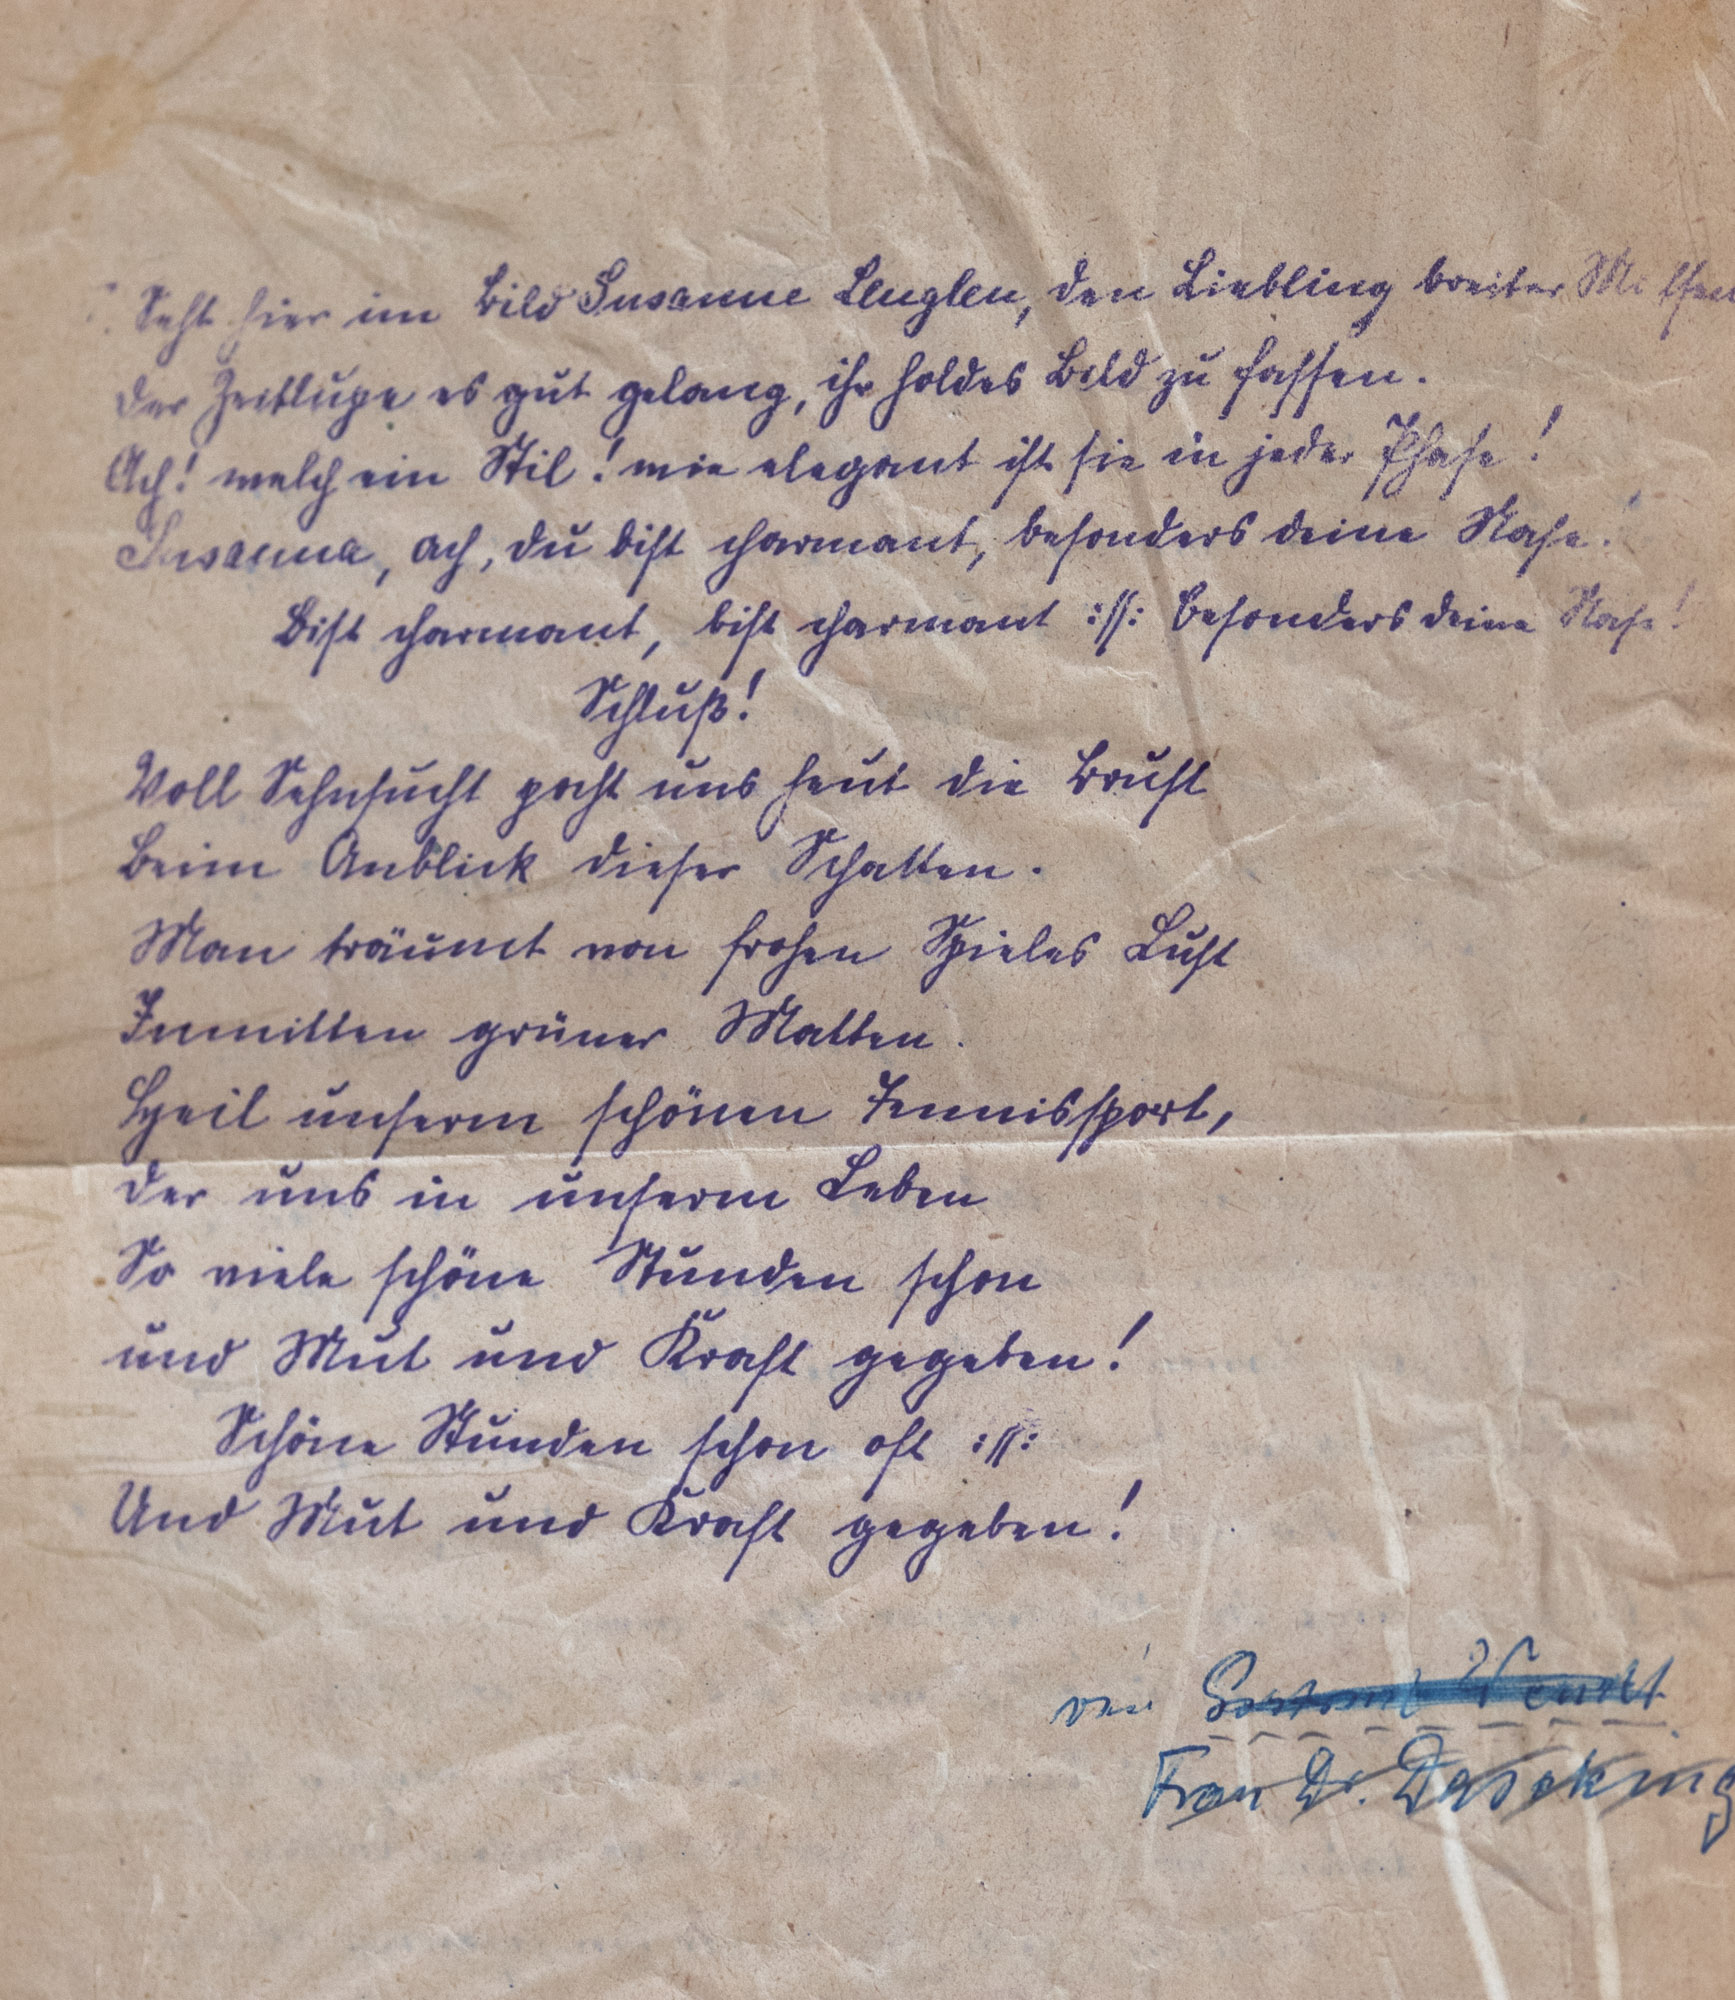 Seht hier im Bild Susanne Lenglen, den Liebling breiter Massen
der Zeitlupe es gut gelang, ihr holdes Bild zu fassen.
Ach! welch ein Stil! wie elegant ist sie in jeder Phase!
Susanna, ach, du bist charmant, besonders deine Nase!
Bist charmant, bist charmant ://: besonders deine Nase!
Schluß!
Voll Sehnsucht pocht uns heut die Brust
Beim Anblick dieser Schatten.
Man träumt von frohen Spieles Lust
Inmitten grüner Matten.
Heil unserm schönen Tennissport,
der uns in unserm Leben
So viele schöne Stunden schon
und Mut und Kraft gegeben!
Schöne Stunden schon oft ://:
Und Mut und Kraft gegeben!
von
Frau Dr. Daseking